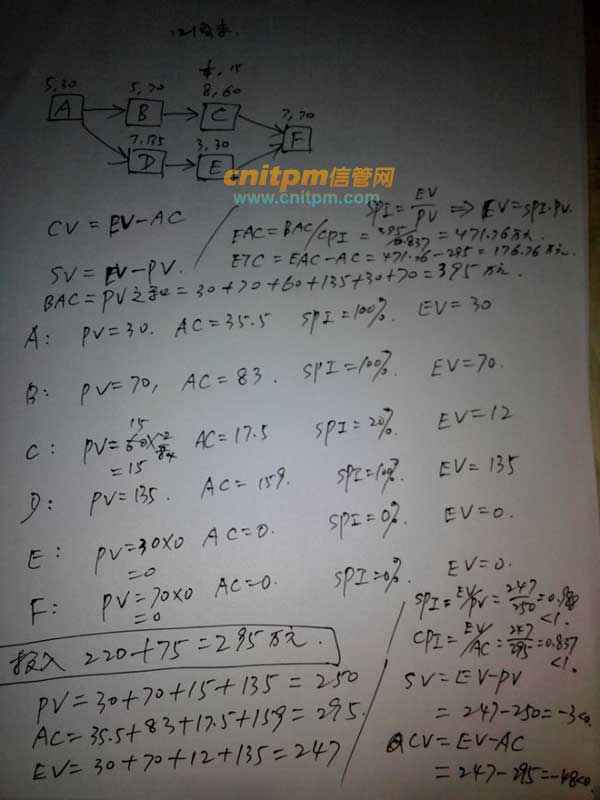 5,30
5,70
15
8,60
7,70
A
B
C
F
7,135
3,30
D
E
cnitpm信管网
www.cnitpm.com
CV = EV-AC
SPI = EV/PV ⇒ EV=SPI·PV.
EAC=BAC/CPI = 395/0.837 = 471.76万元.
SV = EV-PV.
ETC = EAC-AC = 471.76-295 = 176.76万元.
BAC=PV之和=30+70+60+135+30+70=395万元.
A: PV=30. AC=35.5 SPI=100%. EV=30
B: PV=70, AC=83. SPI=100%. EV=70.
15
C: PV=60×2/8 AC=17.5 SPI=20%. EV=12
=15
D: PV=135. AC=159. SPI=100%. EV=135
E: PV=30×0 AC=0. SPI=0%. EV=0.
=0
F: PV=70×0 AC=0. SPI=0%. EV=0.
=0
投入 220+75=295万元.
PV=30+70+15+135=250
AC=35.5+83+17.5+159=295.
EV=30+70+12+135=247
SPI=EV/PV=247/250=0.988
<1.
CPI=EV/AC=247/295=0.837
<1.
SV=EV-PV
=247-250=-3<0.
CV=EV-AC
=247-295=-48<0.